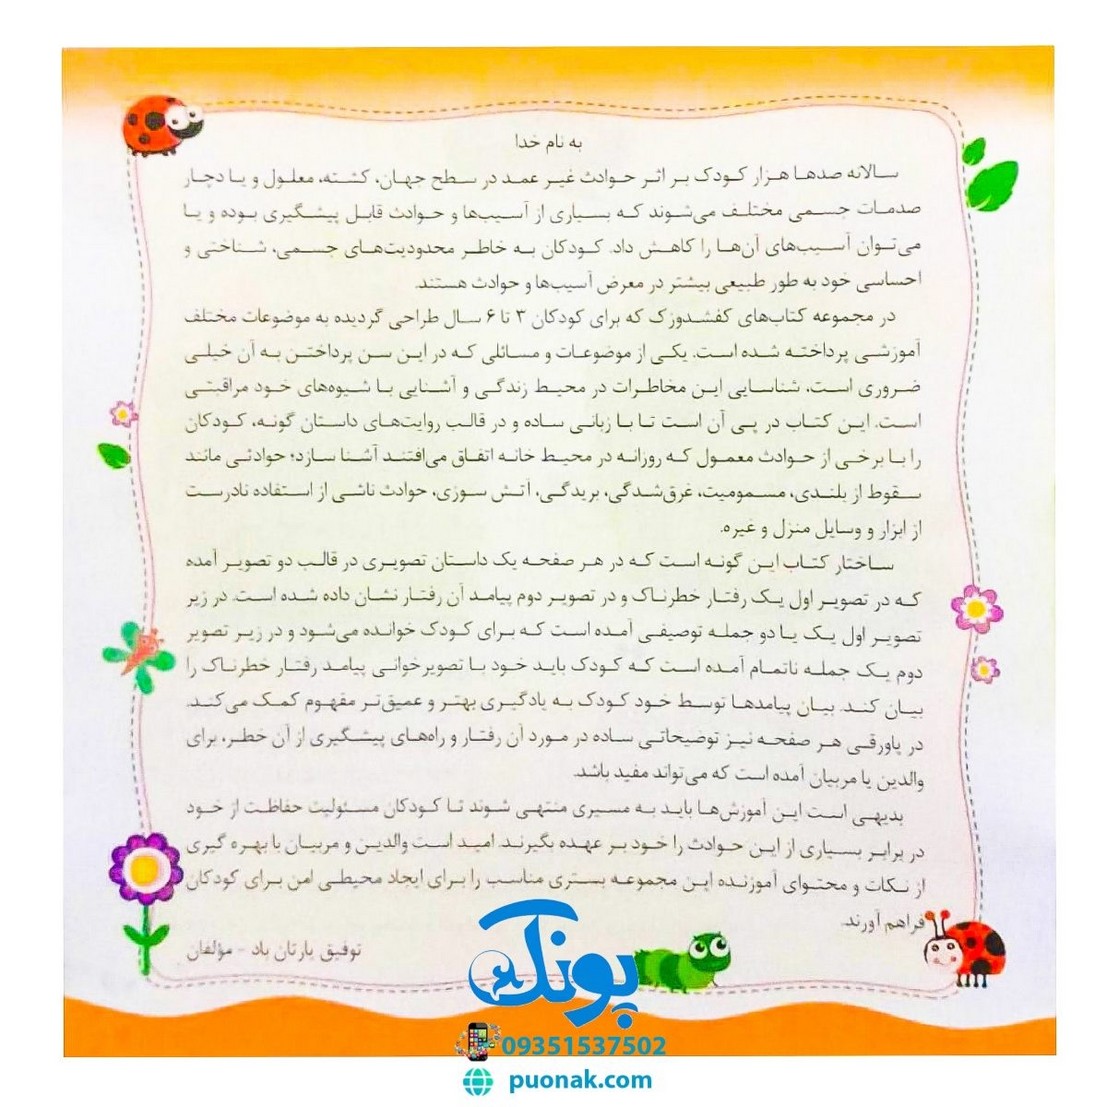 به نام خدا
سالانه صدها هزار کودک بر اثر حوادث غیر عمد در سطح جهان، کشته، معلول و یا دچار
صدمات جسمی مختلف می‌شوند که بسیاری از آسیب‌ها و حوادث قابل پیشگیری بوده و یا
می‌توان آسیب‌های آن‌ها را کاهش داد. کودکان به خاطر محدودیت‌های جسمی، شناختی و
احساسی خود به طور طبیعی بیشتر در معرض آسیب‌ها و حوادث هستند.
در مجموعه کتاب‌های کفشدوزک که برای کودکان ۳ تا ۶ سال طراحی گردیده به موضوعات مختلف
آموزشی پرداخته شده است. یکی از موضوعات و مسائلی که در این سن پرداختن به آن خیلی
ضروری است، شناسایی این مخاطرات در محیط زندگی و آشنایی با شیوه‌های خود مراقبتی
است. این کتاب در پی آن است تا با زبانی ساده و در قالب روایت‌های داستان گونه، کودکان
را با برخی از حوادث معمول که روزانه در محیط خانه اتفاق می‌افتند آشنا سازد؛ حوادثی مانند
سقوط از بلندی، مسمومیت، غرق‌شدگی، بریدگی، آتش سوزی، حوادث ناشی از استفاده نادرست
از ابزار و وسایل منزل و غیره.
ساختار کتاب این گونه است که در هر صفحه یک داستان تصویری در قالب دو تصویر آمده
که در تصویر اول یک رفتار خطرناک و در تصویر دوم پیامد آن رفتار نشان داده شده است. در زیر
تصویر اول یک یا دو جمله توصیفی آمده است که برای کودک خوانده می‌شود و در زیر تصویر
دوم یک جمله ناتمام آمده است که کودک باید خود با تصویرخوانی پیامد رفتار خطرناک را
بیان کند. بیان پیامدها توسط خود کودک به یادگیری بهتر و عمیق‌تر مفهوم کمک می‌کند.
در پاورقی هر صفحه نیز توضیحاتی ساده در مورد آن رفتار و راه‌های پیشگیری از آن خطر، برای
والدین یا مربیان آمده است که می‌تواند مفید باشد.
بدیهی است این آموزش‌ها باید به مسیری منتهی شوند تا کودکان مسئولیت حفاظت از خود
در برابر بسیاری از این حوادث را خود بر عهده بگیرند. امید است والدین و مربیان با بهره گیری
از نکات و محتوای آموزنده این مجموعه بستری مناسب را برای ایجاد محیطی امن برای کودکان
فراهم آورند.
توفیق یارتان باد - مؤلفان
پونک
09351537502
puonak.com